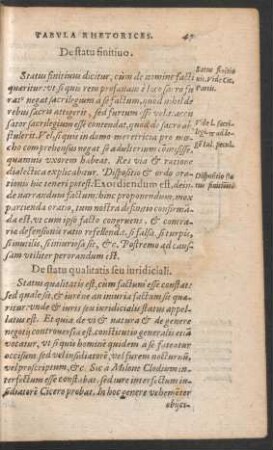 TABVLA RHETORICES. 47
De statu finitiuo.
Status finitiuus dicitur, cùm de nomine facti
quæritur: vt si quis rem profanam è loco sacro
neget sacrilegium à se factum, quòd nihil de
rebus sacris attigerit, sed furtum esse velit: accu
sator sacrilegium esse contendat, quòd de sacro ab
stulerit. Vel si quis in domo meretricia pro mœ
cho comprehensus neget se adulterium commisisse,
quamuis vxorem habeat. Res via & ratione
dialectica explicabitur. Dispositio & ordo ora
tionis hic teneri potest. Exordiendum est, dein
de narrandum factum: hinc proponendum, mox
partienda oratio, tum nostra definitio confirmã
da est, vt cum ipso facto congruens, & con
traria defensoris ratio refellenda, si falsa, si tur
pis, si inutilis, si iniuriosa sit, &c. Postremo ad cau
sam vtiliter perorandum est.
Status finitiu
Dispositio sta
tus finitiuus.
De statu qualitatis seu iuridiciali.
Status qualitatis est, cum factum esse constat:
Sed quale sit, & iure ne an iniuria factum sit quæ
ritur: vnde & iuris seu iuridicialis status appel
latus est. Et quia de vi & natura & de genere
negotij controuersia est, constitutio generalis etiã
vocatur, vt si quis hominē quidem à se fateatur
occisum, sed vel insidiatorē, vel furem nocturnū,
vel proscriptum, &c. Sic à Milone Clodium in
terfectum esse constabat, sed iure interfectum in
sidiatorē Cicero probat. In hoc genere vehemēter
obijci-